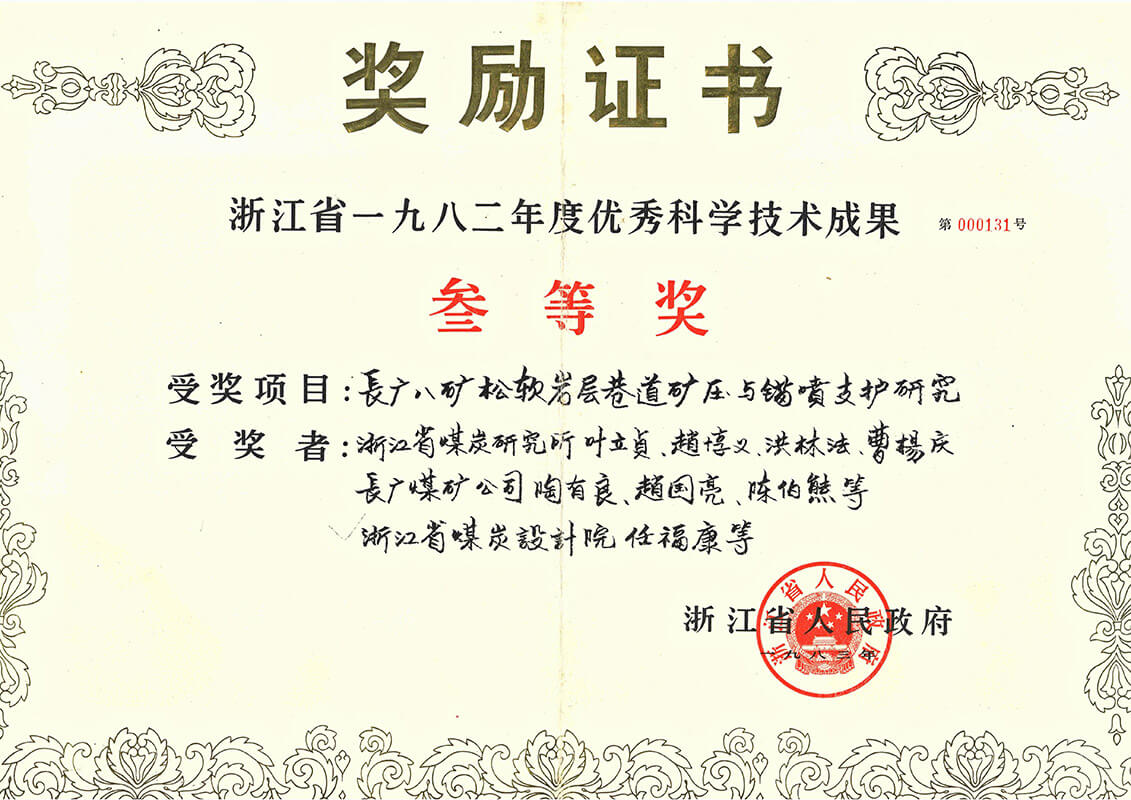 奖励证书
浙江省一九八二年度优秀科学技术成果 第000131号
叁等奖
受奖项目:長广八矿松软岩层巷道矿压与锚喷支护研究
受奖者:浙江省煤炭研究所 叶立貞、趙惇义、洪林法、曹楊庆
長广煤矿公司 陶有良、趙国亮、陈伯熊等
浙江省煤炭設計院 任福康等
浙江省人民政府
浙江省人民政府
一九八三年